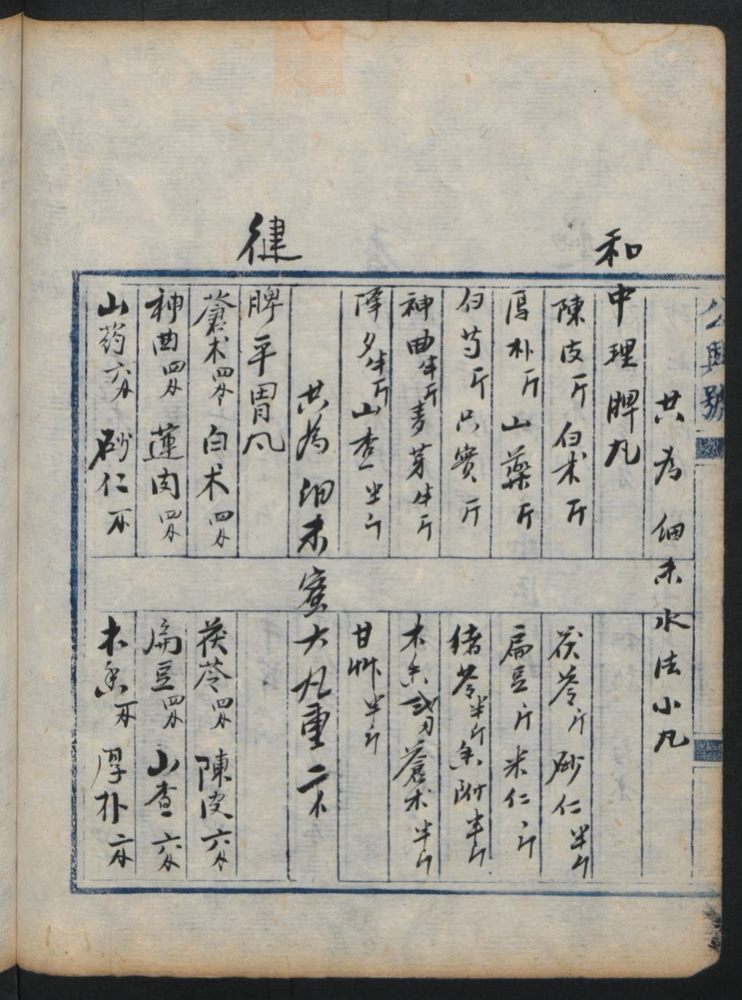 共为细末水法小丸
和中理脾丸
陳皮斤 白术斤 茯苓斤 砂仁半斤
厚朴斤 山藥斤 扁豆斤 米仁斤
白芍斤 只實斤 猪苓半斤 香附半斤
神曲半斤 麦芽半斤 木香 蒼术半斤
山查半斤 甘草半斤
共為細末 蜜大丸重二
健脾平胃丸
蒼术四 白术四 茯苓四 陳皮六
神曲四 蓮肉四 扁豆四 山查六
山药六 砂仁 木香 厚朴二